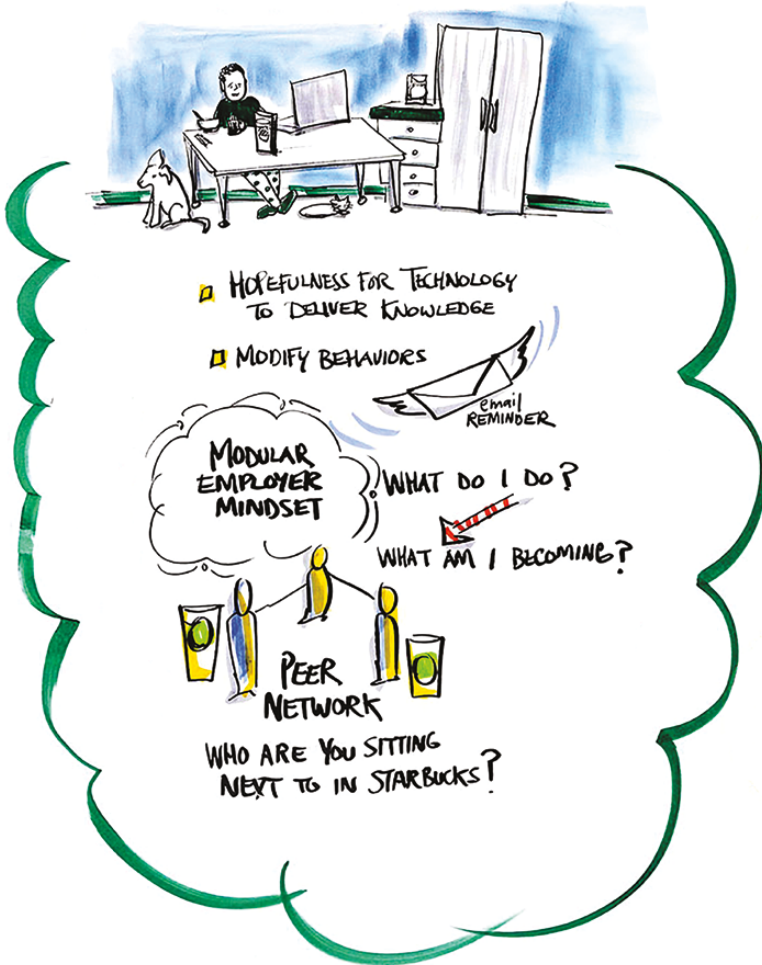 HOPEFULNESS FOR TECHNOLOGY
TO DELIVER KNOWLEDGE
MODIFY BEHAVIORS
email
REMINDER
MODULAR
EMPLOYER
MINDSET
WHAT DO I DO?
WHAT AM I BECOMING?
PEER
NETWORK
WHO ARE YOU SITTING
NEXT TO IN STARBUCKS?